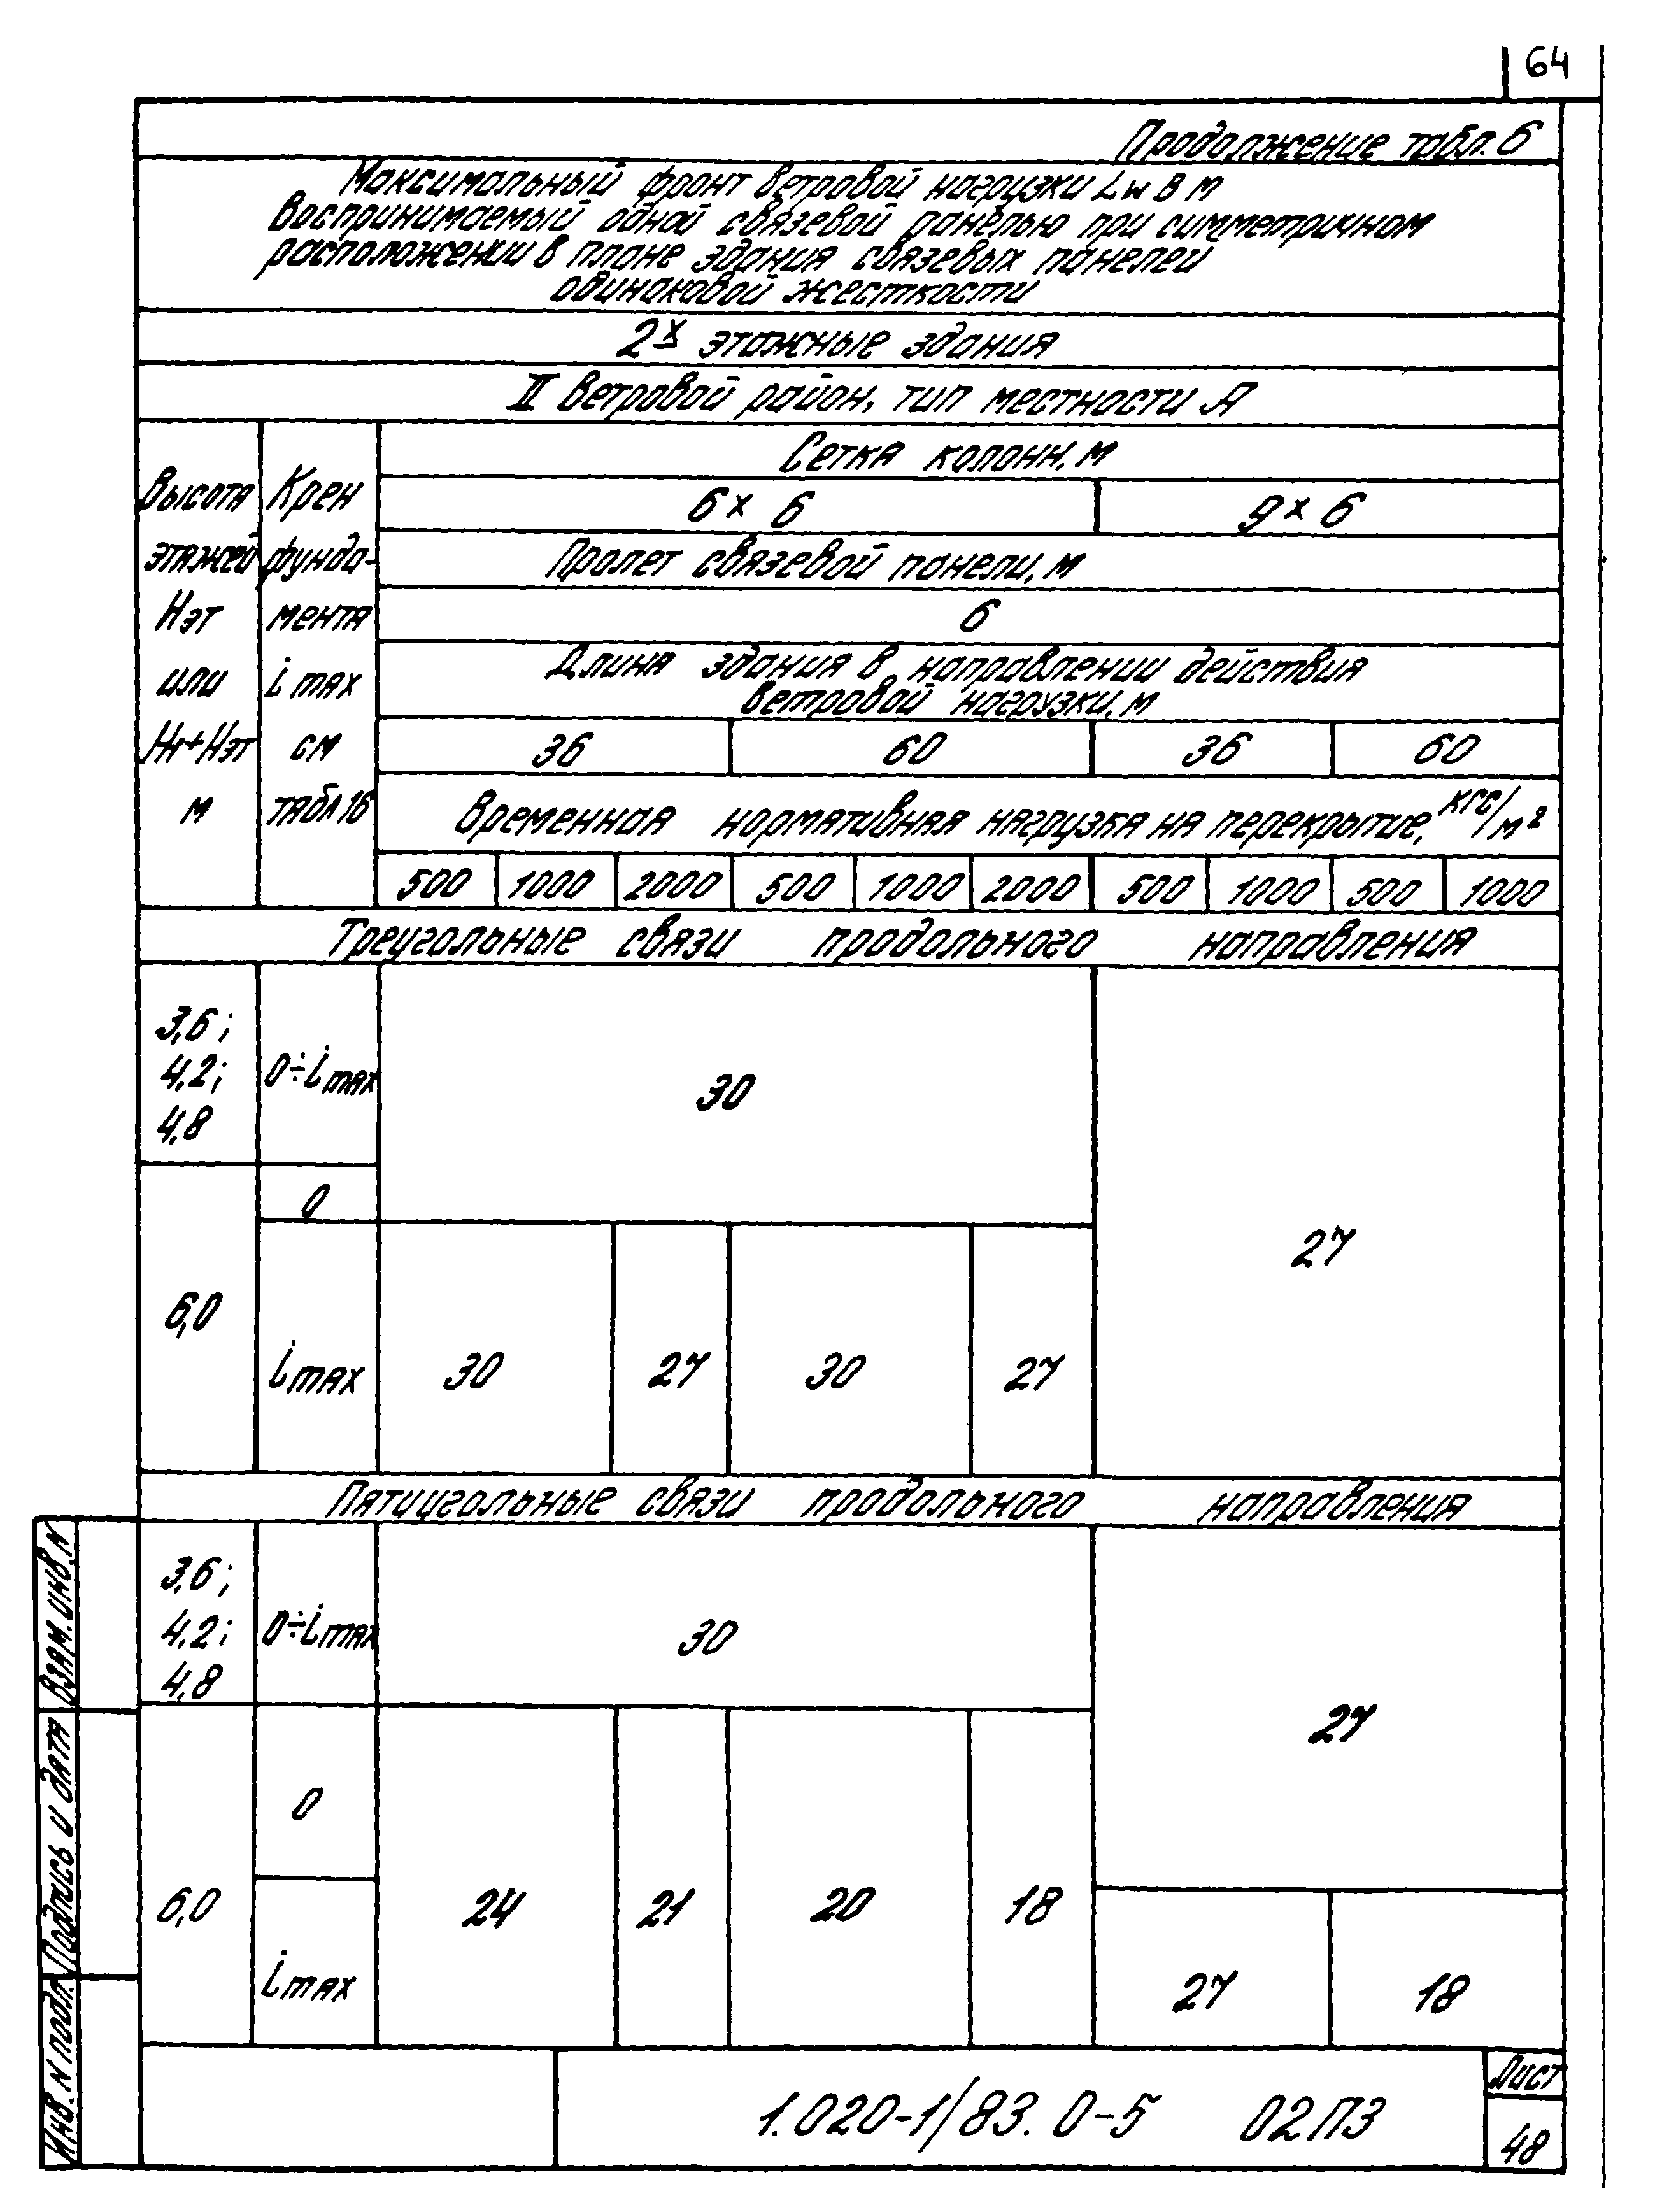 64
Продолжение табл. 6
Максимальный фронт ветровой нагрузки Lw в м
воспринимаемый одной связевой панелью при симметричном
расположении в плане здания связевых панелей
одинаковой жесткости
2х этажные здания
II ветровой район, тип местности А
Высота
этажей
Нэт
или
+Нэт
м
Крен
фунда-
мента
i max
см
табл 16
Сетка колонн, м
6 х 6 9 х 6
Пролет связевой панели, м
6
Длина здания в направлении действия
ветровой нагрузки, м
36 60 36 60
Временная нормативная нагрузка на перекрытие, кгс/м2
500 1000 2000 500 1000 2000 500 1000 500 1000
Треугольные связи продольного направления
3,6;
4,2; 0÷imax 30
4,8
0
27
6,0
imax 30 27 30 27
Пятиугольные связи продольного направления
3,6;
4,2; 0÷imax 30
4,8
27
0
6,0 24 21 20 18
imax 27 18
Взам. инв. N
Подпись и дата
Инв. N подл.
1.020-1/83. 0-5 02ПЗ
Лист
48